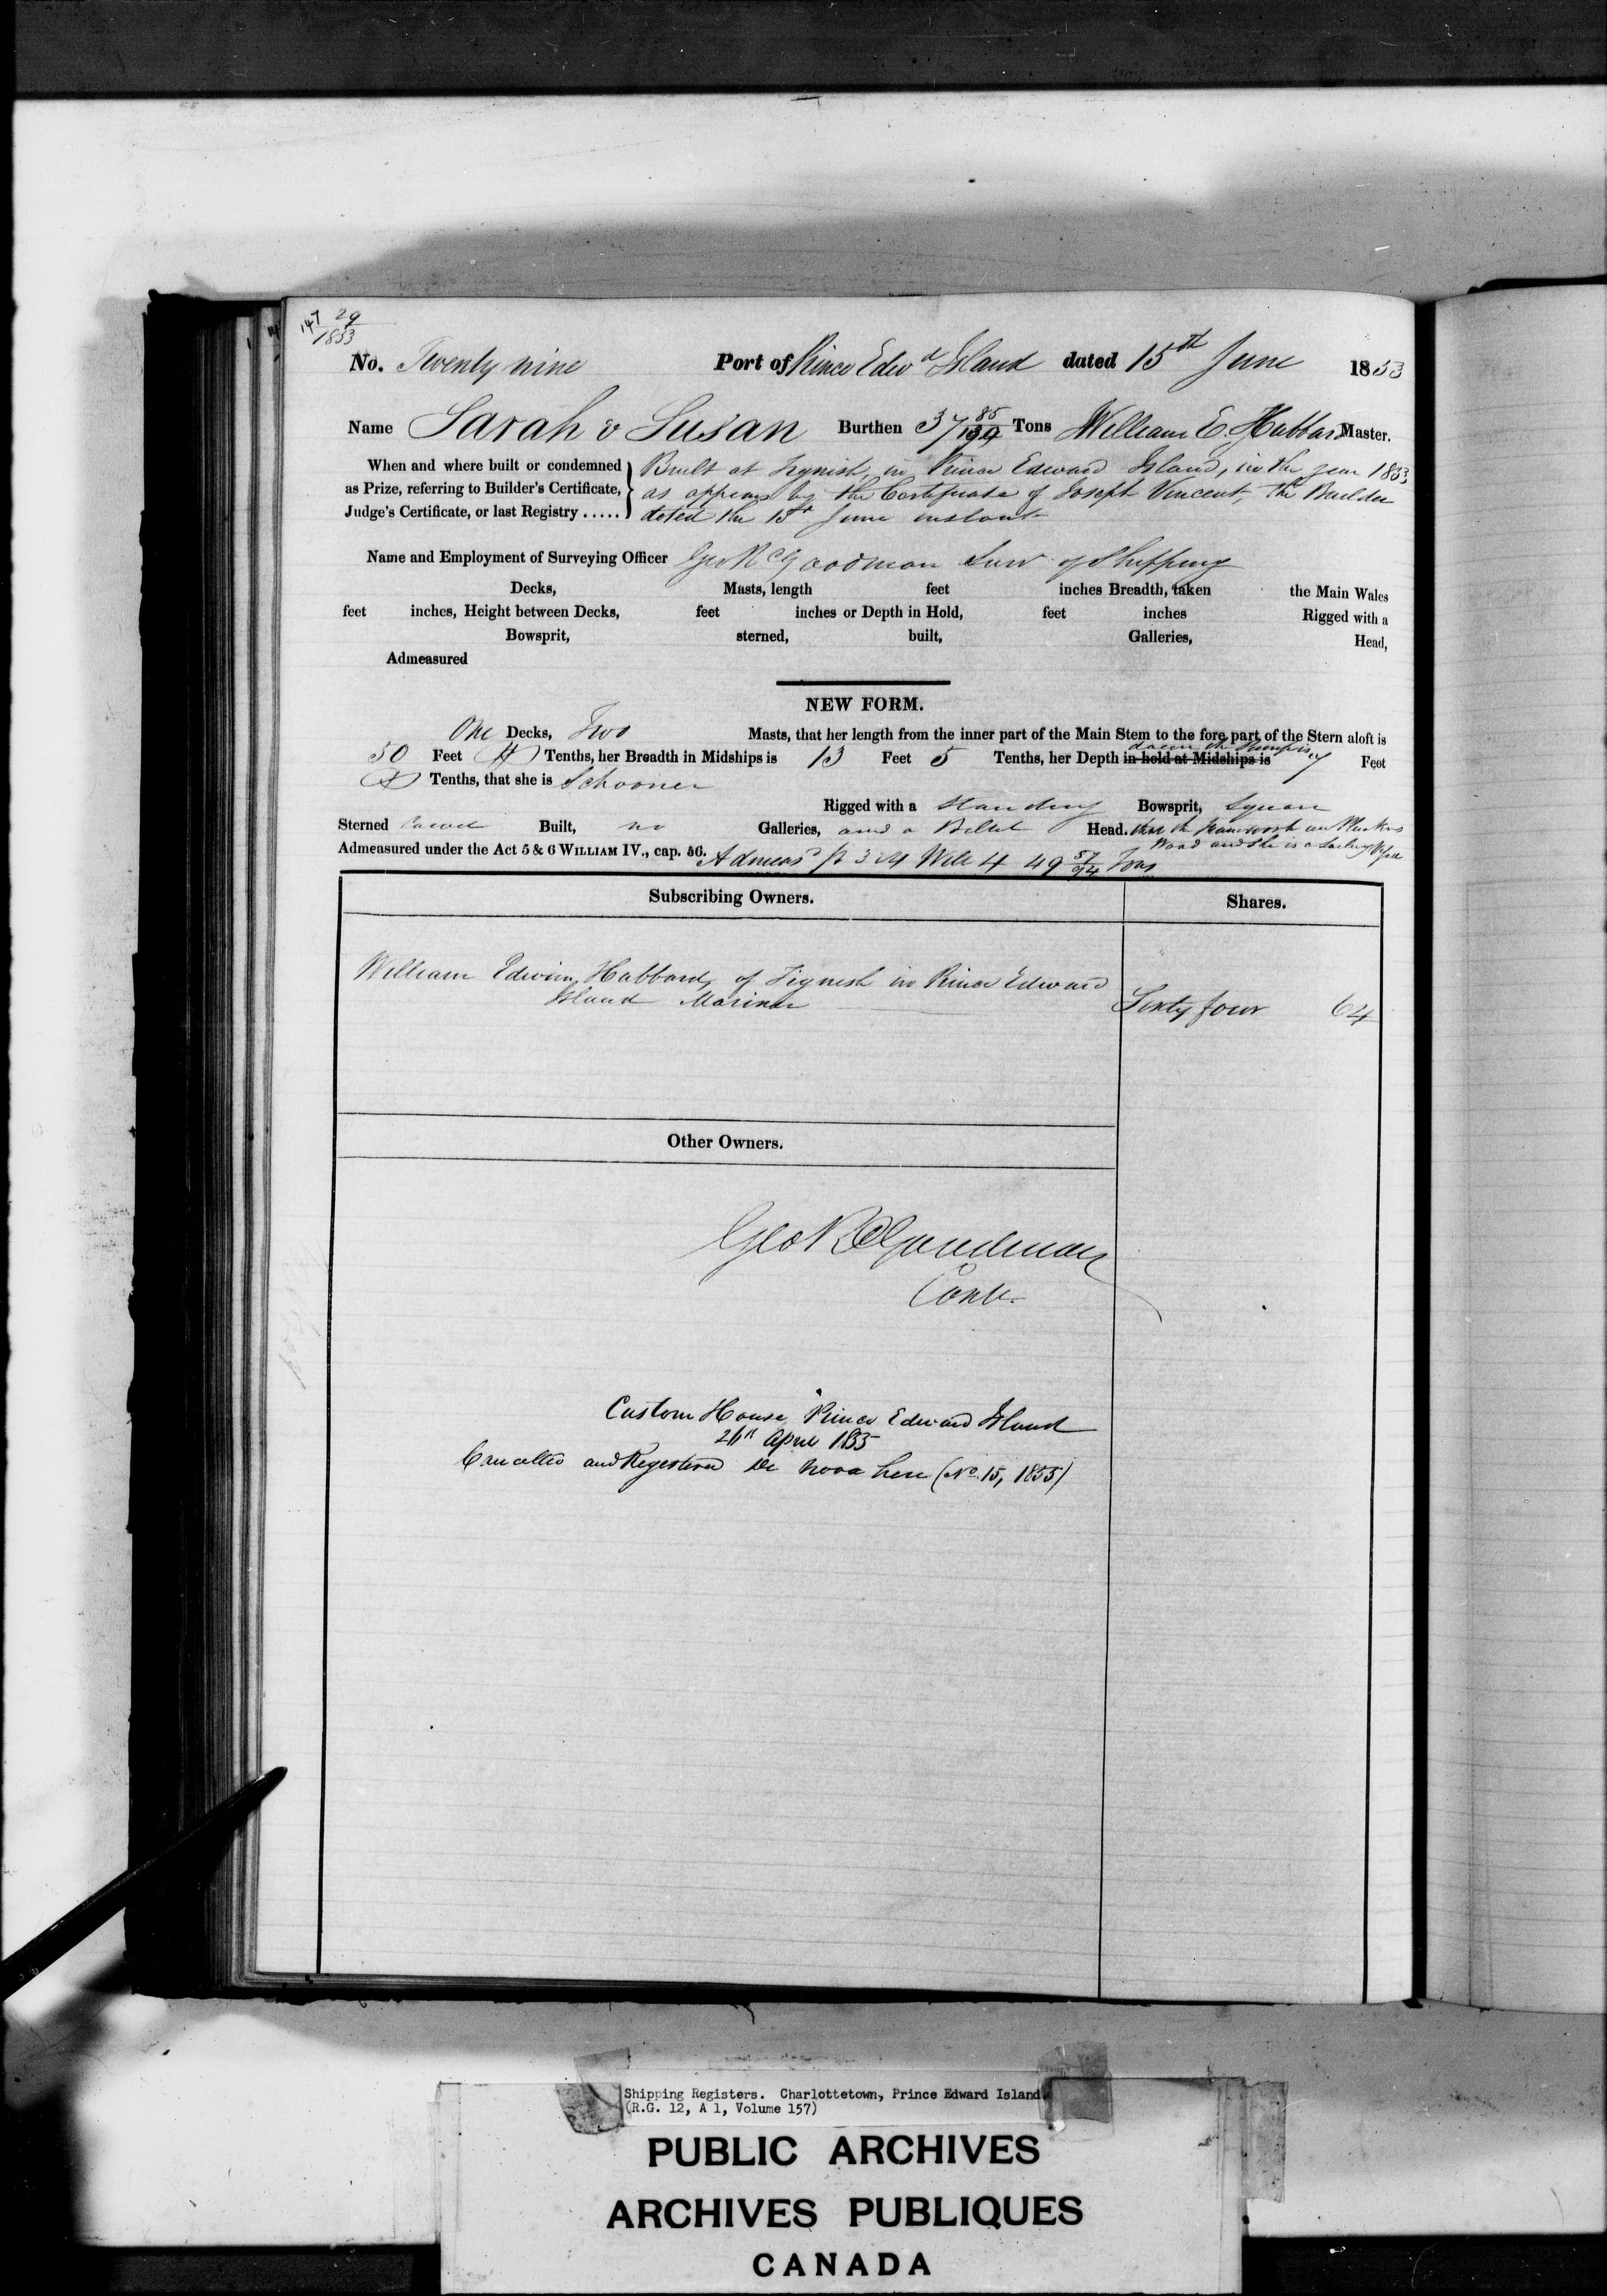 147 29
1853
No. Twenty nine Port of Prince Edwd Island dated 15th June 1853
Name Sarah & Susan Burthen 37 85/ Tons William E. Hubbard Master.
When and where built or condemned Built at Tignish, in Prince Edward Island, in the year 1853
as Prize, referring to Builder's Certificate, as appears by the Certificate of Joseph Vincent the Builder
Judge's Certificate, or last Registry ..... dated the 15th June instant
Name and Employment of Surveying Officer Geo R Goodman Surv of Shipping
Decks, Masts, length feet inches Breadth, taken the Main Wales
feet inches, Height between Decks, feet inches or Depth in Hold, feet inches Rigged with a
Bowsprit, sterned, built, Galleries, Head,
Admeasured
NEW FORM.
One Decks, Two Masts, that her length from the inner part of the Main Stem to the fore part of the Stern aloft is
50 Feet 4 Tenths, her Breadth in Midships is 13 Feet 5 Tenths, her Depth in hold at Midships is 7 Feet
Tenths, that she is Schooner
Rigged with a Standing Bowsprit, Square
Sterned Carvel Built, no Galleries, and a Billet Head. that the framework and Plank is
Wood and she is a Sailing Vessel
Admeasured under the Act 5 & 6 WILLIAM IV., cap. 56. Admeasd pr 3 & 4 Will 4 49 57/94 Tons
Subscribing Owners. Shares.
William Edwin Hubbard, of Tignish in Prince Edward
Island Mariner Sixty four 64
Other Owners.
Geo R Goodman
Contr.
Custom House, Prince Edward Island
April 1855
Cancelled and Registered De Novo here (No. 15, 1855)
Shipping Registers. Charlottetown, Prince Edward Island
(R.G. 12, A 1, Volume 157)
PUBLIC ARCHIVES
ARCHIVES PUBLIQUES
CANADA